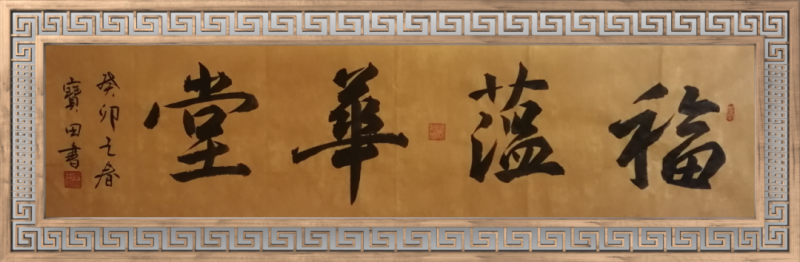 福蕰華堂
癸卯之春
寶田書